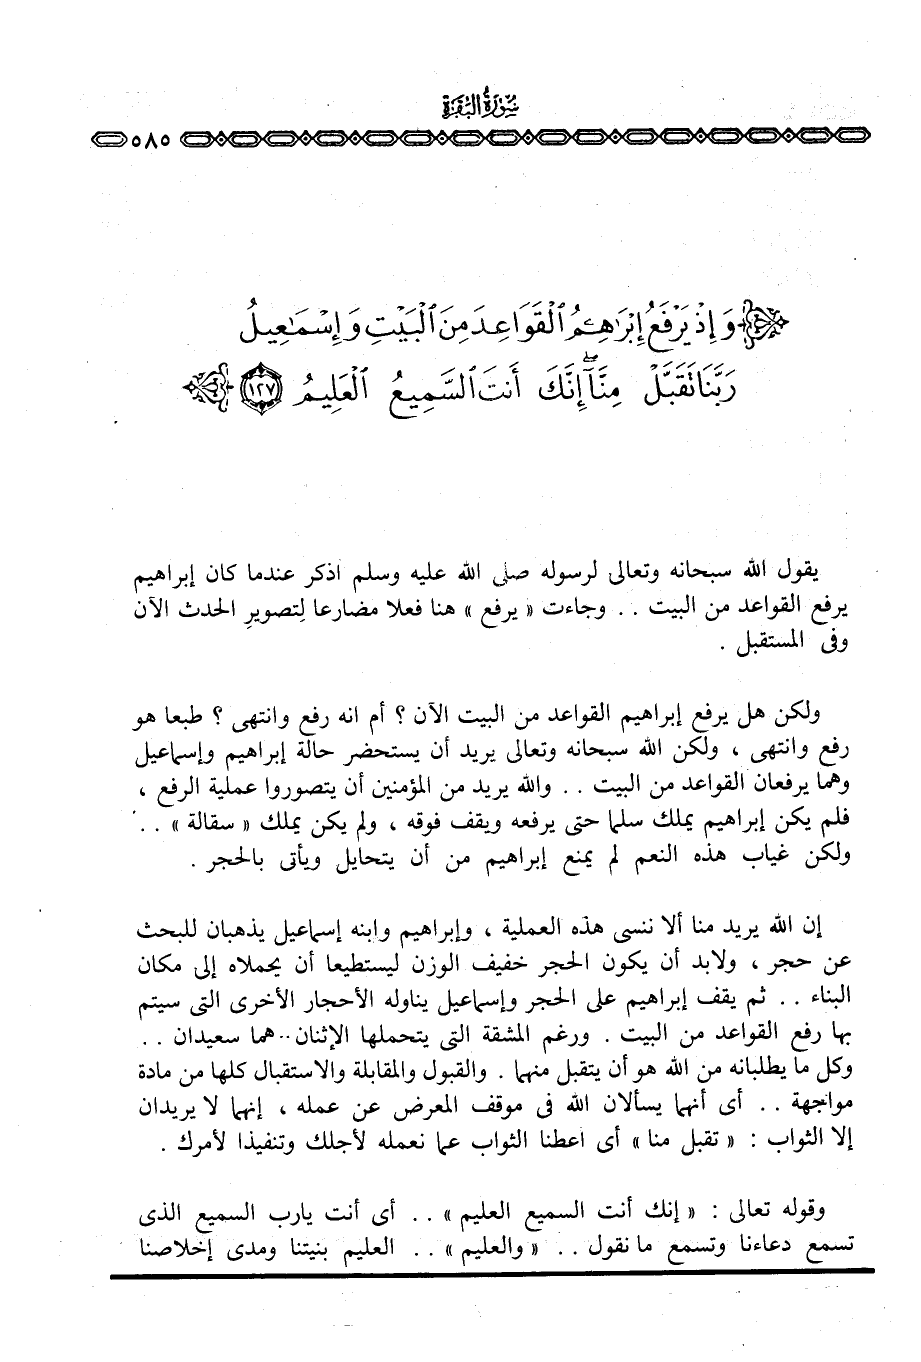 سُورَةُ البَقَرَة
٥٨٥
وَإِذْ يَرْفَعُ إِبْرَٰهِـۧمُ ٱلْقَوَاعِدَ مِنَ ٱلْبَيْتِ وَإِسْمَٰعِيلُ
رَبَّنَا تَقَبَّلْ مِنَّآ ۖ إِنَّكَ أَنتَ ٱلسَّمِيعُ ٱلْعَلِيمُ ١٢٧
يقول الله سبحانه وتعالى لرسوله صلى الله عليه وسلم اذكر عندما كان إبراهيم
يرفع القواعد من البيت . . وجاءت « يرفع » هنا فعلا مضارعا لِتصويرِ الحدث الآن
وفى المستقبل .
ولكن هل يرفع إبراهيم القواعد من البيت الآن ؟ أم انه رفع وانتهى ؟ طبعا هو
رفع وانتهى ، ولكن الله سبحانه وتعالى يريد أن يستحضر حالة إبراهيم وإسماعيل
وهما يرفعان القواعد من البيت . . والله يريد من المؤمنين أن يتصوروا عملية الرفع ،
فلم يكن إبراهيم يملك سلما حتى يرفعه ويقف فوقه ، ولم يكن يملك « سقالة » . .
ولكن غياب هذه النعم لم يمنع إبراهيم من أن يتحايل ويأتى بالحجر .
إن الله يريد منا ألا ننسى هذه العملية ، وإبراهيم وابنه إسماعيل يذهبان للبحث
عن حجر ، ولابد أن يكون الحجر خفيف الوزن ليستطيعا أن يحملاه إلى مكان
البناء . . ثم يقف إبراهيم على الحجر وإسماعيل يناوله الأحجار الأخرى التى سيتم
بها رفع القواعد من البيت . ورغم المشقة التى يتحملها الإثنان . . هما سعيدان . .
وكل ما يطلبانه من الله هو أن يتقبل منهما . والقبول والمقابلة والاستقبال كلها من مادة
مواجهة . . أى أنهما يسألان الله فى موقف المعرض عن عمله ، إنهما لا يريدان
إلا الثواب : « تقبل منا » أى اعطنا الثواب عما نعمله لأجلك وتنفيذا لأمرك .
وقوله تعالى : « إنك أنت السميع العليم » . . أى أنت يارب السميع الذى
تسمع دعاءنا وتسمع ما نقول . . « والعليم » . . العليم بنيتنا ومدى إخلاصنا